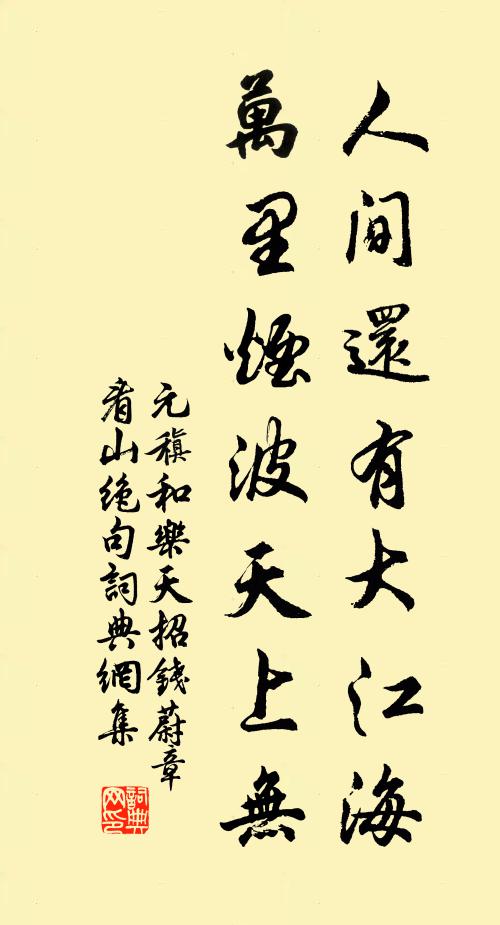 人間還有大江海
萬里煙波天上無
元稹和樂天招錢蔚章
看山絶句詞典網集
詞典
网印